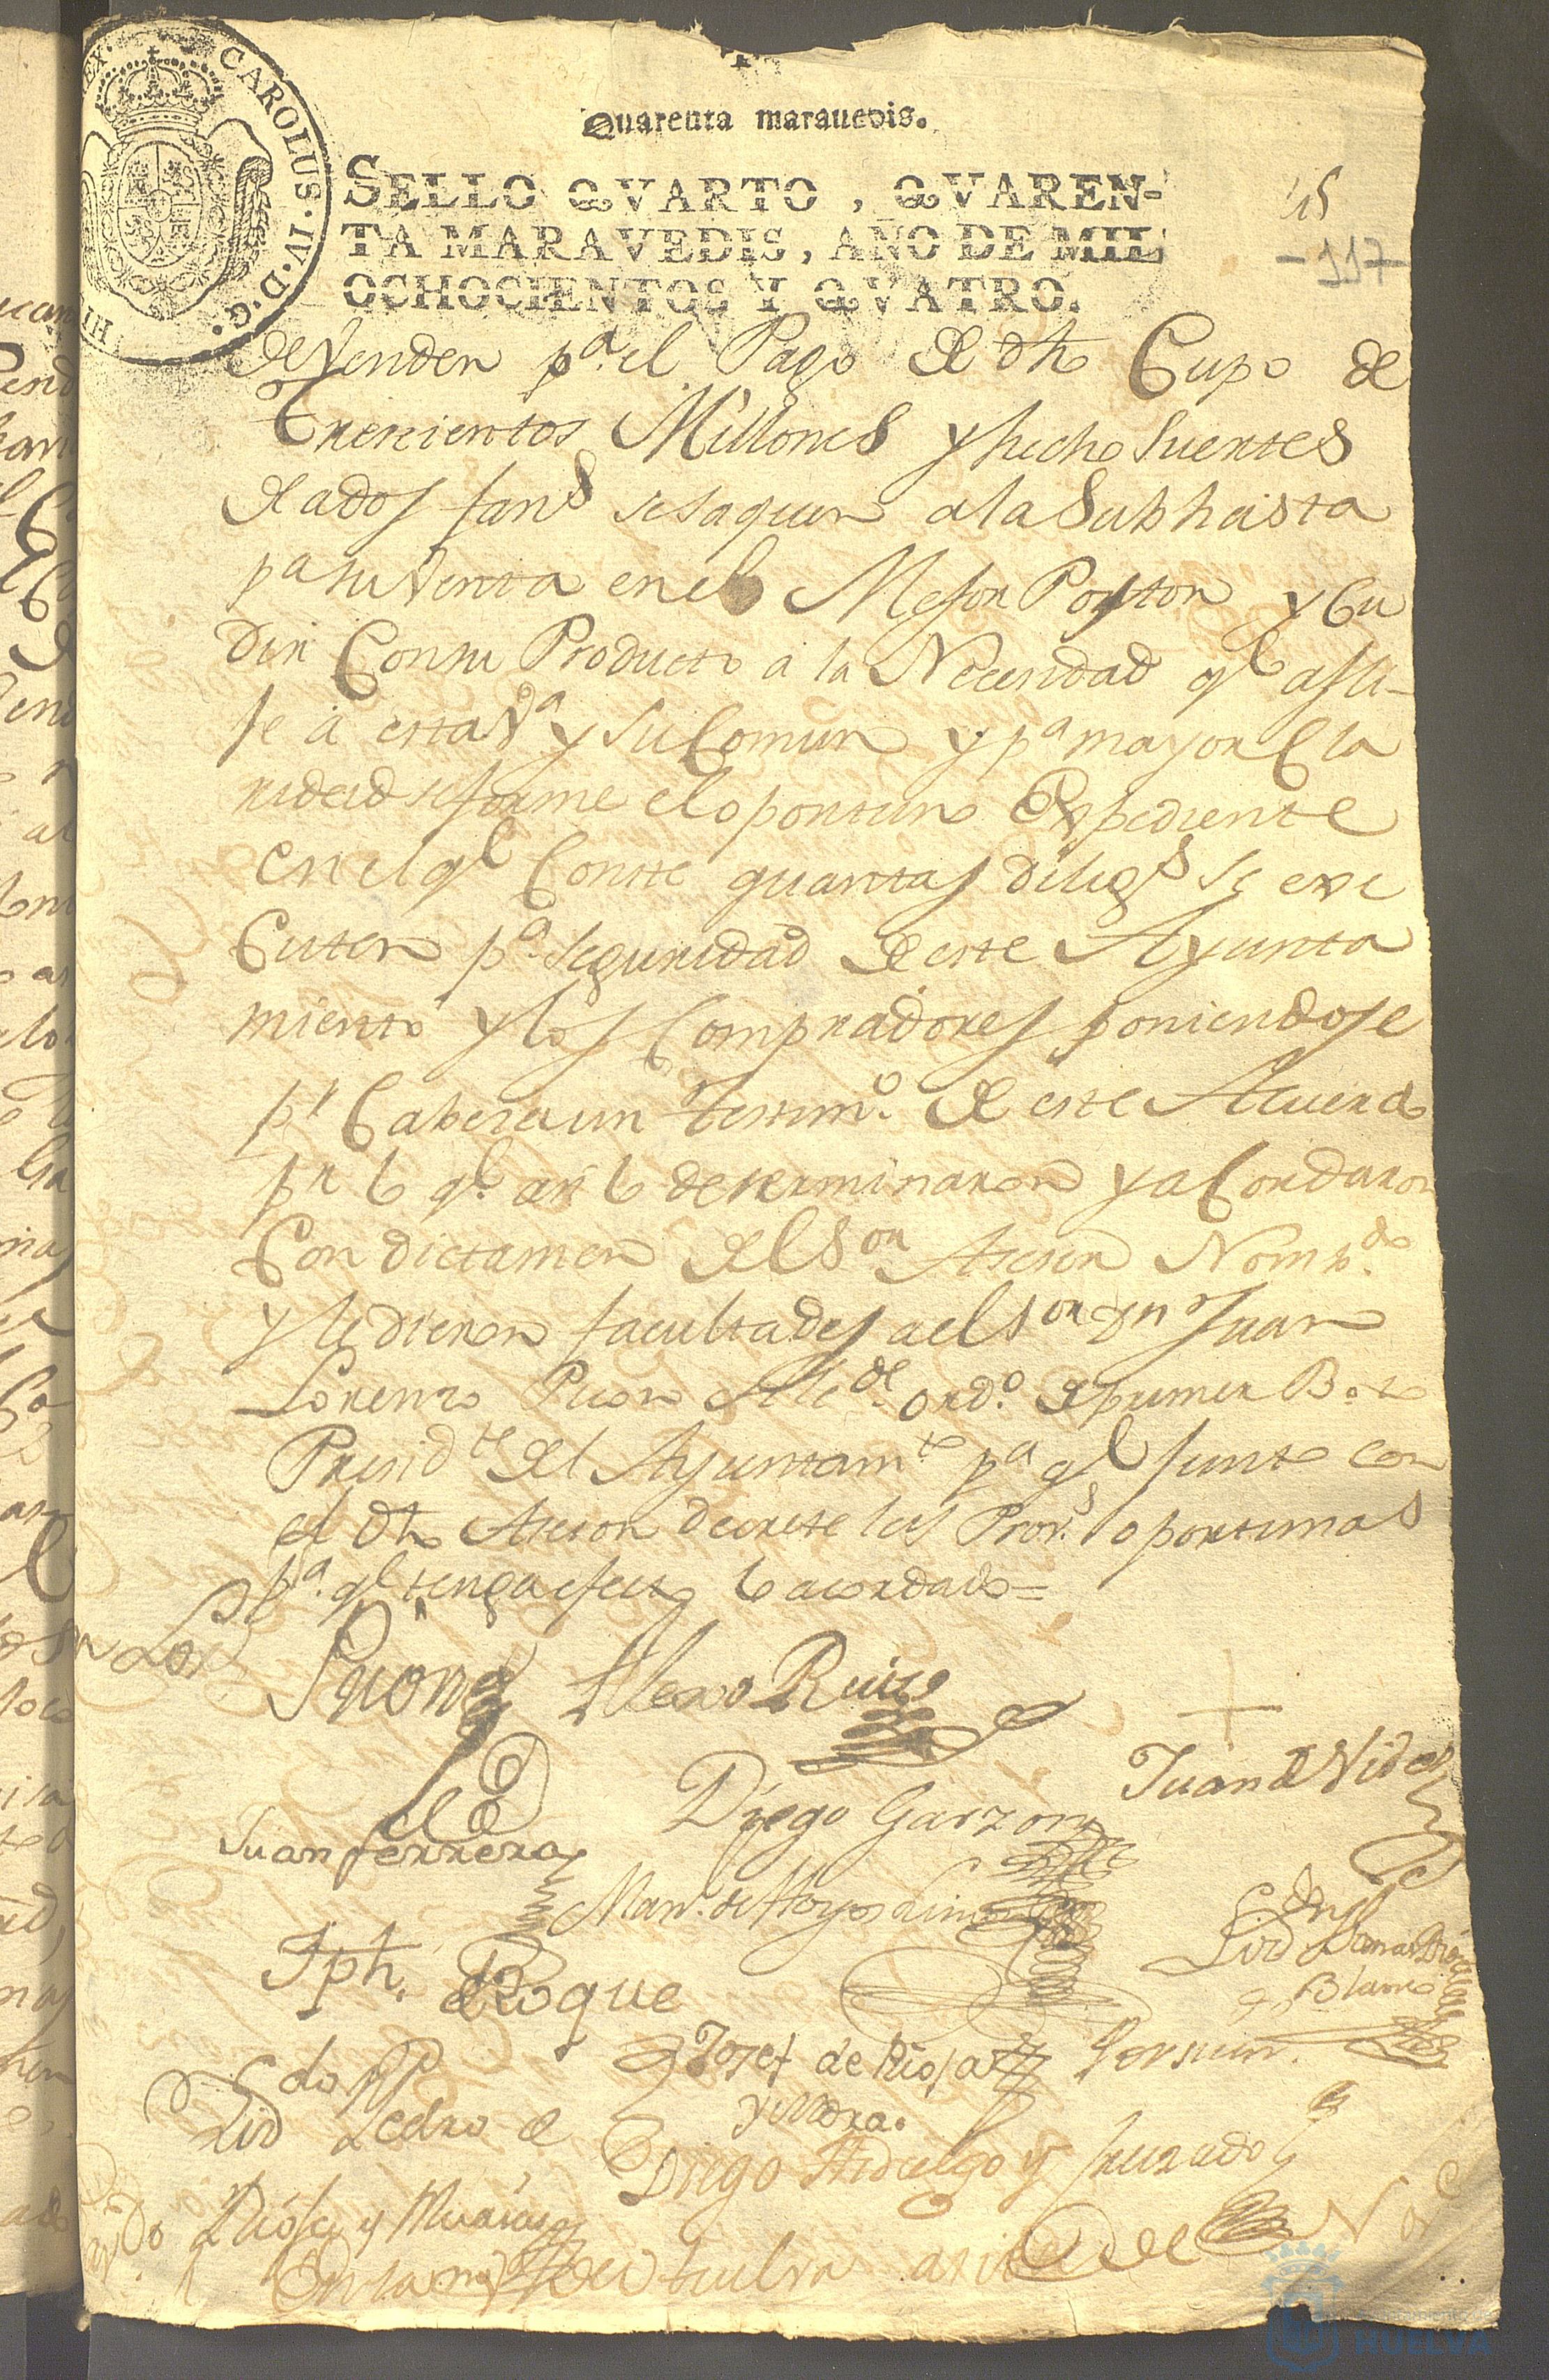 CAROLUS·IV·D·G·
HI
Quarenta maravedis.
SELLO QVARTO, QVAREN-
TA MARAVEDIS, AÑO DE MIL
OCHOCIENTOS Y QVATRO.
115
-117-
de Vender pa. el Pago de dho Cupo de
trescientos Millones y hecho Suertes
de a dos fans se saquen a la Subhasta
pa su Venta en el Mejor Postor y Cu
brir Con su Producto a la Necesidad qe afli-
je a esta Va y su Comun y pa mayor Cla
ridad se forme el oportuno Expediente
en el qe Conste quantas diligs se exe
Cuten pa. seguridad de este Ayunta
miento y los Compradores poniendose
pr Cabeza un testimo. de este Acuerdo
pr lo qe. asi lo determinaron y a Cordaron
Con dictamen del Sor Asesor Nombdo.
y le dieron facultades a el Sor Dn Juan
Lorenzo Puon Alcde. ordo. de primer Boto
Presidte del Ayuntamto pa qe junto con
el dho Asesor decrete las Provs. oportunas
pa. qe tenga efecto lo acordado=
Puon Alexo Ruiz
Juan de Vides
Diego Garzon
Juan Ferrera
Man. de Hoyos
Jph. Roque
Lizdo
Blanco
Josef de Riosa
y Mora.
Lizdo Pedro de
Diego Hidalgo y Jurado
Riosa y
En la Va de Huelva
HUELVA